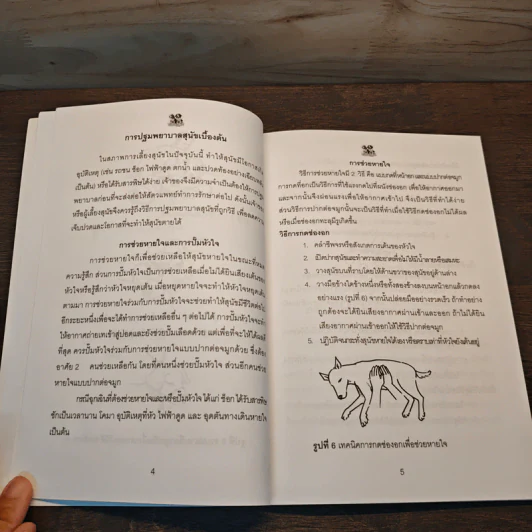 การปฐมพยาบาลสุนัขเบื้องต้น
ในสภาพการเลี้ยงสุนัขในปัจจุบันนี้ ทำให้สุนัขมีโอกาส
อุบัติเหตุ (เช่น รถชน ช็อก ไฟฟ้าดูด ตกน้ำ และปวดท้องอย่างเฉียบพลัน
เป็นต้น) หรือได้รับสารพิษได้ง่าย เจ้าของจึงมีความจำเป็นต้องให้การปฐม
พยาบาลก่อนที่จะส่งต่อให้สัตวแพทย์ทำการรักษาต่อไป ดังนั้นเจ้าของ
หรือผู้เลี้ยงสุนัขจึงควรรู้ถึงวิธีการปฐมพยาบาลสุนัขที่ถูกวิธี เพื่อลดความ
เจ็บปวดและโอกาสที่จะทำให้สุนัขตายได้
การช่วยหายใจและการปั๊มหัวใจ
การช่วยหายใจก็เพื่อช่วยเหลือให้สุนัขหายใจในขณะที่หมด
ความรู้สึก ส่วนการปั๊มหัวใจเป็นการช่วยเหลือเมื่อไม่ได้ยินเสียงเต้นของ
หัวใจหรือรู้สึกว่าหัวใจหยุดเต้น เมื่อหยุดหายใจจะทำให้หัวใจหยุดเต้น
ตามมา การช่วยหายใจร่วมกับการปั๊มหัวใจจะช่วยทำให้สุนัขมีชีวิตต่อไป
อีกระยะหนึ่งเพื่อจะได้ทำการช่วยเหลืออื่น ๆ ต่อไปได้ การปั๊มหัวใจจะทำ
ให้อากาศถ่ายเทเข้าสู่ปอดและยังช่วยปั๊มเลือดด้วย แต่เพื่อที่จะให้ได้ผลดี
ที่สุด ควรปั๊มหัวใจร่วมกับการช่วยหายใจแบบปากต่อจมูกด้วย ซึ่งต้อง
อาศัย 2 คนช่วยเหลือกัน โดยที่คนหนึ่งช่วยปั๊มหัวใจ ส่วนอีกคนช่วย
หายใจแบบปากต่อจมูก
กรณีฉุกเฉินที่ต้องช่วยหายใจและ/หรือปั๊มหัวใจ ได้แก่ ช็อก ได้รับสารพิษ
ชักเป็นเวลานาน โคมา อุบัติเหตุที่หัว ไฟฟ้าดูด และ อุดตันทางเดินหายใจ
เป็นต้น
4
การช่วยหายใจ
วิธีการช่วยหายใจมี 2 วิธี คือ แบบกดที่หน้าอกและแบบปากต่อจมูก
การกดที่อกเป็นวิธีการที่ใช้แรงกดไปที่ผนังช่องอก เพื่อให้อากาศออกมา
และจากนั้นจึงผ่อนแรงเพื่อให้อากาศเข้าไป จึงเป็นวิธีที่ทำได้ง่าย
ส่วนวิธีการปากต่อจมูกนั้นจะเป็นวิธีที่ทำเมื่อใช้วิธีกดช่องอกไม่ได้ผล
หรือเมื่อช่องอกทะลุมีรูเกิดขึ้น
วิธีการกดช่องอก
1. คลำชีพจรหรือสังเกตการเต้นของหัวใจ
2. เปิดปากสุนัขและทำความสะอาดเพื่อไม่ให้มีน้ำลายหรือเสมหะ
3. วางสุนัขบนที่ราบโดยให้ด้านขวาของสุนัขอยู่ด้านล่าง
4. วางมือข้างใดข้างหนึ่งหรือทั้งสองข้างลงบนหน้าอกแล้วกดลง
อย่างแรง (รูปที่ 6) จากนั้นปล่อยมืออย่างรวดเร็ว ถ้าทำอย่าง
ถูกต้องจะได้ยินเสียงอากาศผ่านเข้าและออก ถ้าไม่ได้ยิน
เสียงอากาศผ่านเข้าออกให้ใช้วิธีปากต่อจมูก
5. ปฏิบัติจนกระทั่งสุนัขหายใจได้เองหรือตราบเท่าที่หัวใจยังเต้นอยู่
รูปที่ 6 เทคนิคการกดช่องอกเพื่อช่วยหายใจ
5